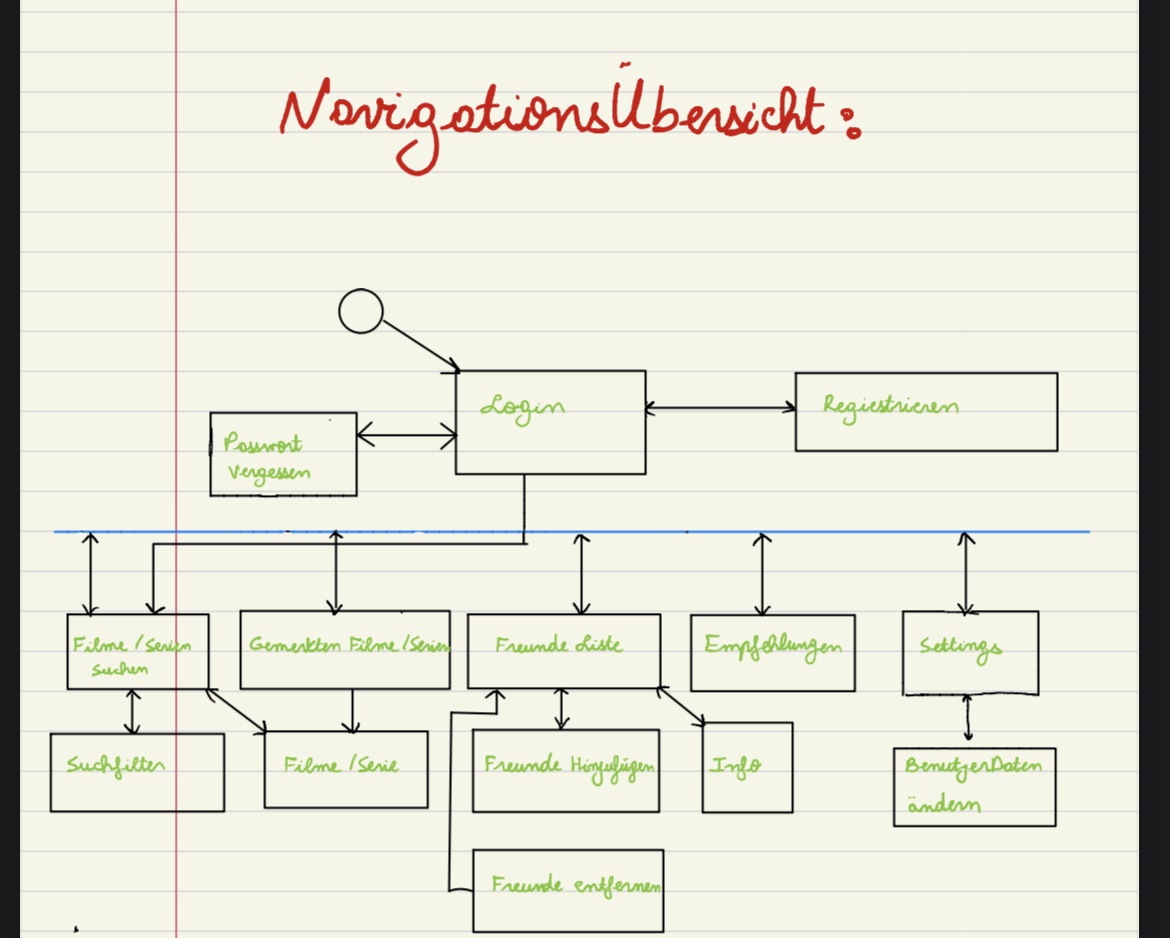 NavigationsÜbersicht:
Login
Regiestrieren
Passwort
vergessen
Filme / Serien
suchen
Gemerkten Filme / Serien
Freunde Liste
Empfehlungen
Settings
Suchfilter
Filme / Serie
Freunde Hinzufügen
Info
BenutzerDaten
ändern
Freunde entfernen